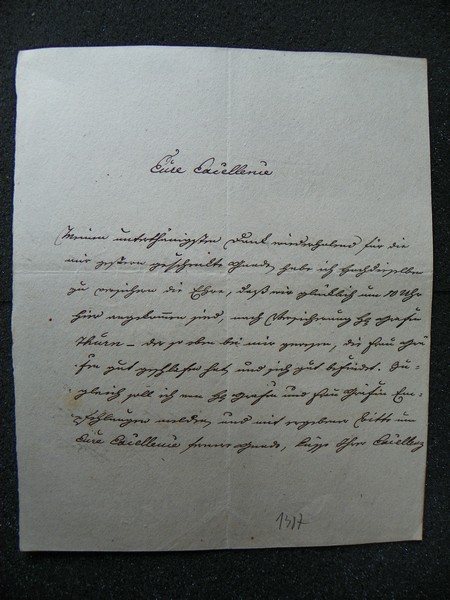 Eure Excellenz
Meinen unterthänigsten Dank wiederholend für die
mir gestern geschenkte Gnade, habe ich hochderselben
zu versichern die Ehre, daß wir glücklich um 10 Uhr
hier angekommen sind, nach Versicherung H: Grafen
Thurn – der so eben bei mir gewesen, die Frau Grä-
fin gut geschlafen hat, und sich gut befindet. Zu-
gleich soll ich von H: Grafen und Frau Gräfin Em-
pfehlungen melden, und mit ergebener Bitte um
Eure Excellenz fernere Gnade, küsse Ihrer Excellenz
1317